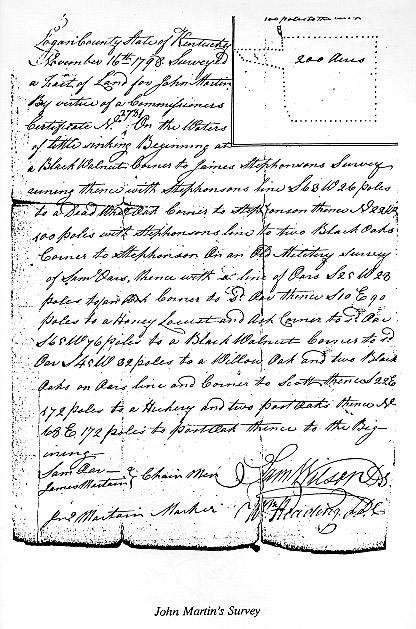 100 poles to the inch
200 Acres
Logan County State of Kentucky
November 16th 1798 Surveyed
a Tract of Land for John Martin
By virtue of a Commissioners
Certificate No 273 On the Waters
of little sinking Beginning at
a Black Walnut Corner to James Stephensons Survey
runing thence with Stephensons line S68W26 poles
to a Dead White Oak Corner to Stephenson thence N22W
100 poles with Stephensons line to two Black Oaks
Corner to Stephenson On an Old Military Survey
of Sam Oars, thence with sd line of Oars S25W28
poles to an Ash Corner to Sd Oar thence S10E90
poles to a Honey Locust and Ash Corner to sd Oar
S65W76 poles to a Black Walnut Corner to sd
Oar S45W32 poles to a Willow Oak and two Black
Oaks on Oars line and Corner to Scott thence S22E
172 poles to a Hickery and two post Oaks thence N
68E172 poles to post Oak thence to the Big-
ning
Sam Oar
James Martain } Chain Men
Sam Wilson DS
Jno Martain Marker
Wm Reading
John Martin's Survey